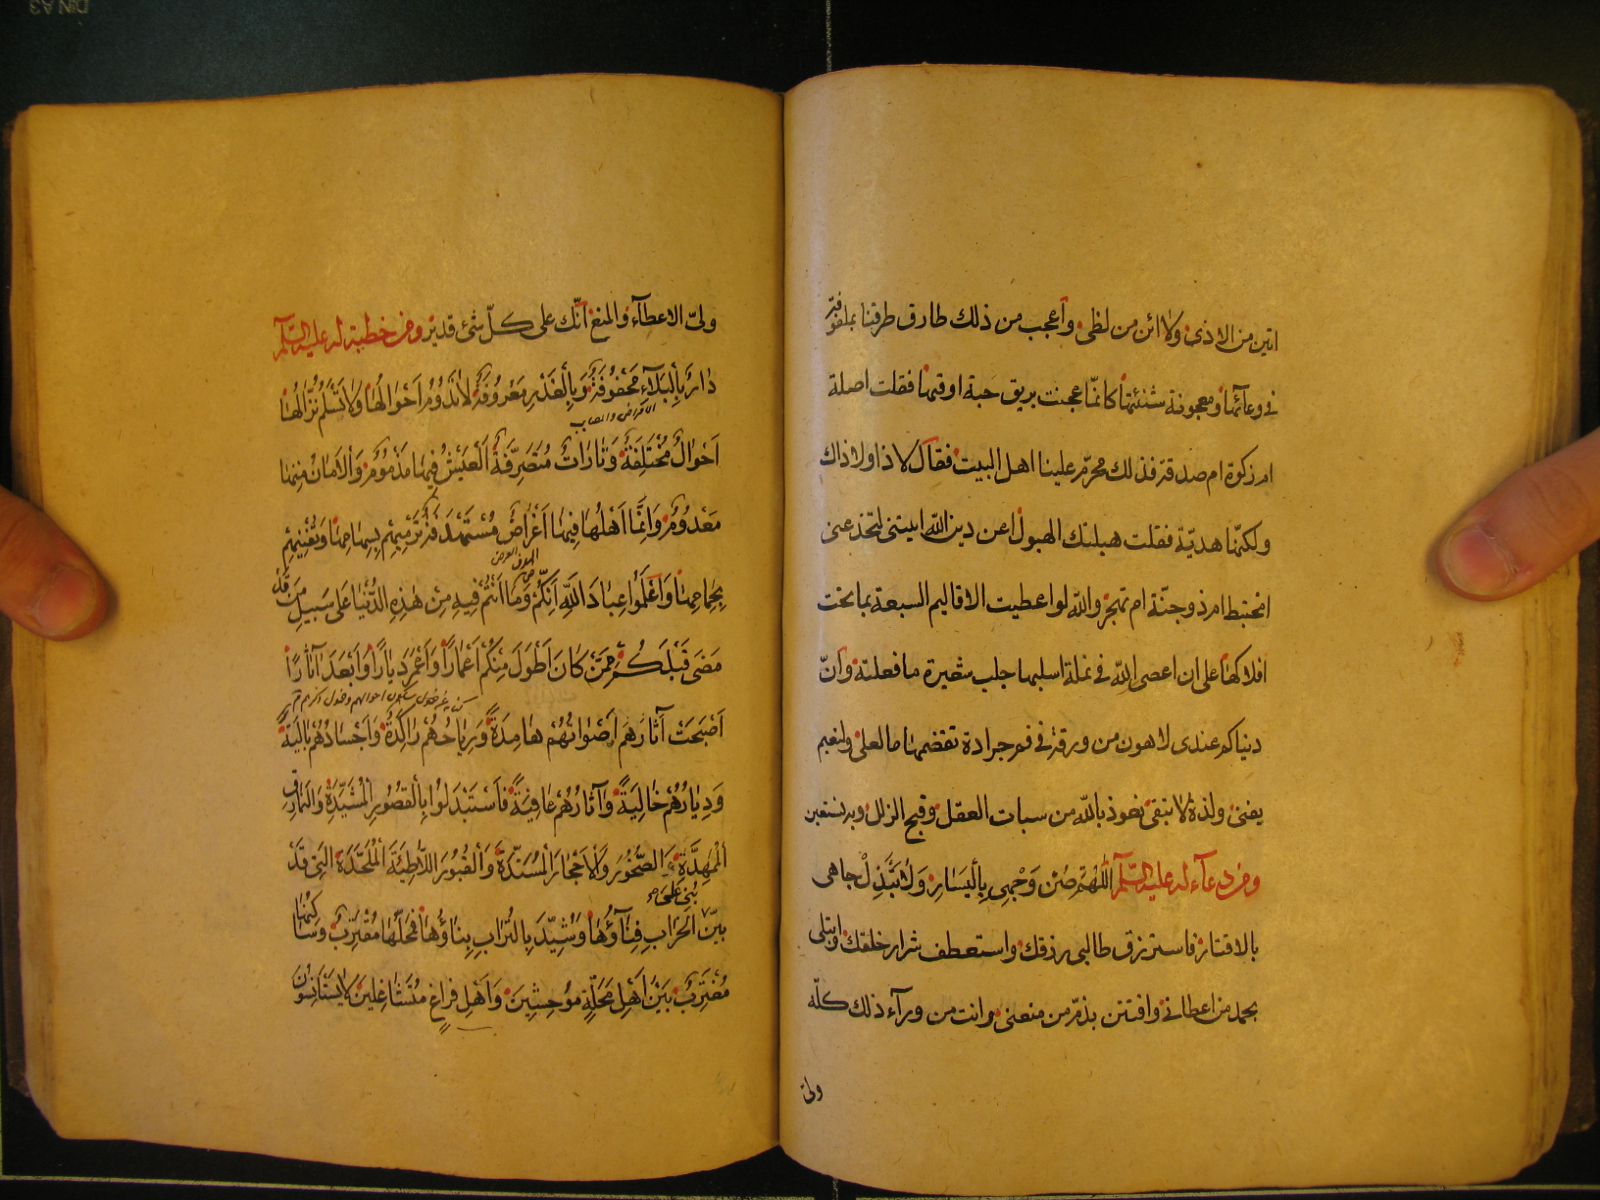 اتئن من الاذى ولا ائن من لظى واعجب من ذلك طارق طرقنا بملفوفة
فى وعائها ومعجونة شنئتها كانما عجنت بريق حية او قيئها فقلت اصلة
ام زكوة ام صدقة فذلك محرم علينا اهل البيت فقال لا ذا ولا ذاك
ولكنها هدية فقلت هبلتك الهبول اعن دين الله اتيتنى لتخدعنى
امختبط ام ذو جنة ام تهجر والله لو اعطيت الاقاليم السبعة بما تحت
افلاكها على ان اعصى الله فى نملة اسلبها جلب شعيرة ما فعلته وان
دنياكم عندى لاهون من ورقة فى فم جرادة تقضمها ما لعلى ولنعيم
يفنى ولذة لا تبقى نعوذ بالله من سبات العقل وقبح الزلل وبه نستعين
ومن دعاء له عليه السلم اللهم صُن وَجْهِى بِاليَسَارِ وَلا تَبَّذِلْ جاهى
بالاقتار فاسترزق طالبى رزقك واستعطف شرار خلقك وابتلى
بحمد من اعطانى وافتتن بذمّ من منعنى وانت من ورآء ذلك كلّه
ولىّ
ولىّ الاعطآء والمنع انّك على كلّ شئ قدير ومن خطبة له عليه السّلم
دَارٌ بِالْبَلَآءِ مَحْفُوفَةٌ وَبِالْغَدْرِ مَعْرُوفَةٌ لا تَدُومُ اَحْوَالُهَا وَلا تَسْلَمُ نُزَّالُهَا
اَحْوَالٌ مُخْتَلِفَةٌ وَتَارَاتٌ مُتَصَرِّفَةٌ اَلْعَيْشُ فِيهَا مَذْمُومٌ وَالاَمَانُ مِنْهَا
مَعْدُومٌ وَاِنَّمَا اَهْلُهَا فِيهَا اَغْرَاضٌ مُسْتَهْدَفَةٌ تَرْمِيهِمْ بِسِهَامِهَا وَتُفْنِيهِمْ
بِحِمَامِهَا وَاعْلَمُوا عِبَادَ اللّهِ اَنَّكُمْ وَمَا اَنْتُمْ فِيهِ مِنْ هٰذِهِ الدُّنْيَا عَلى سَبِيلِ مَنْ قَدْ
مَضى قَبْلَكُمْ مِمَّنْ كَانَ اَطْوَلَ مِنْكُمْ اَعْمَارًا وَاَعْمَرَ دِيَارًا وَاَبْعَدَ آثَارًا
اَصْبَحَتْ اَصْوَاتُهُمْ هَامِدَةً وَرِيَاحُهُمْ رَاكِدَةً وَاَجْسَادُهُمْ بَالِيَةً
وَدِيَارُهُمْ خَالِيَةً وَآثَارُهُمْ عَافِيَةً فَاسْتَبْدَلُوا بِالْقُصُورِ الْمُشَيَّدَةِ وَالنَّمَارِقِ
الْمُمَهَّدَةِ الصُّخُورَ وَالاَحْجَارَ الْمُسَنَّدَةَ وَالْقُبُورَ اللاَّطِئَةَ الْمُلْحَدَةَ الّتى قَدْ
بُنِىَ عَلَى
الْخَرَابِ فِنَآؤُهَا وَشُيِّدَ بِالتُّرَابِ بِنَاؤُهَا فَمَحَلُّهَا مُقْتَرِبٌ وَسَاكِنُهَا
مُغْتَرِبٌ بَيْنَ اَهْلِ مَحَلَّةٍ مُوحِشِينَ وَاَهْلِ فَرَاغٍ مُتَشَاغِلِينَ لا يَسْتَاْنِسُونَ